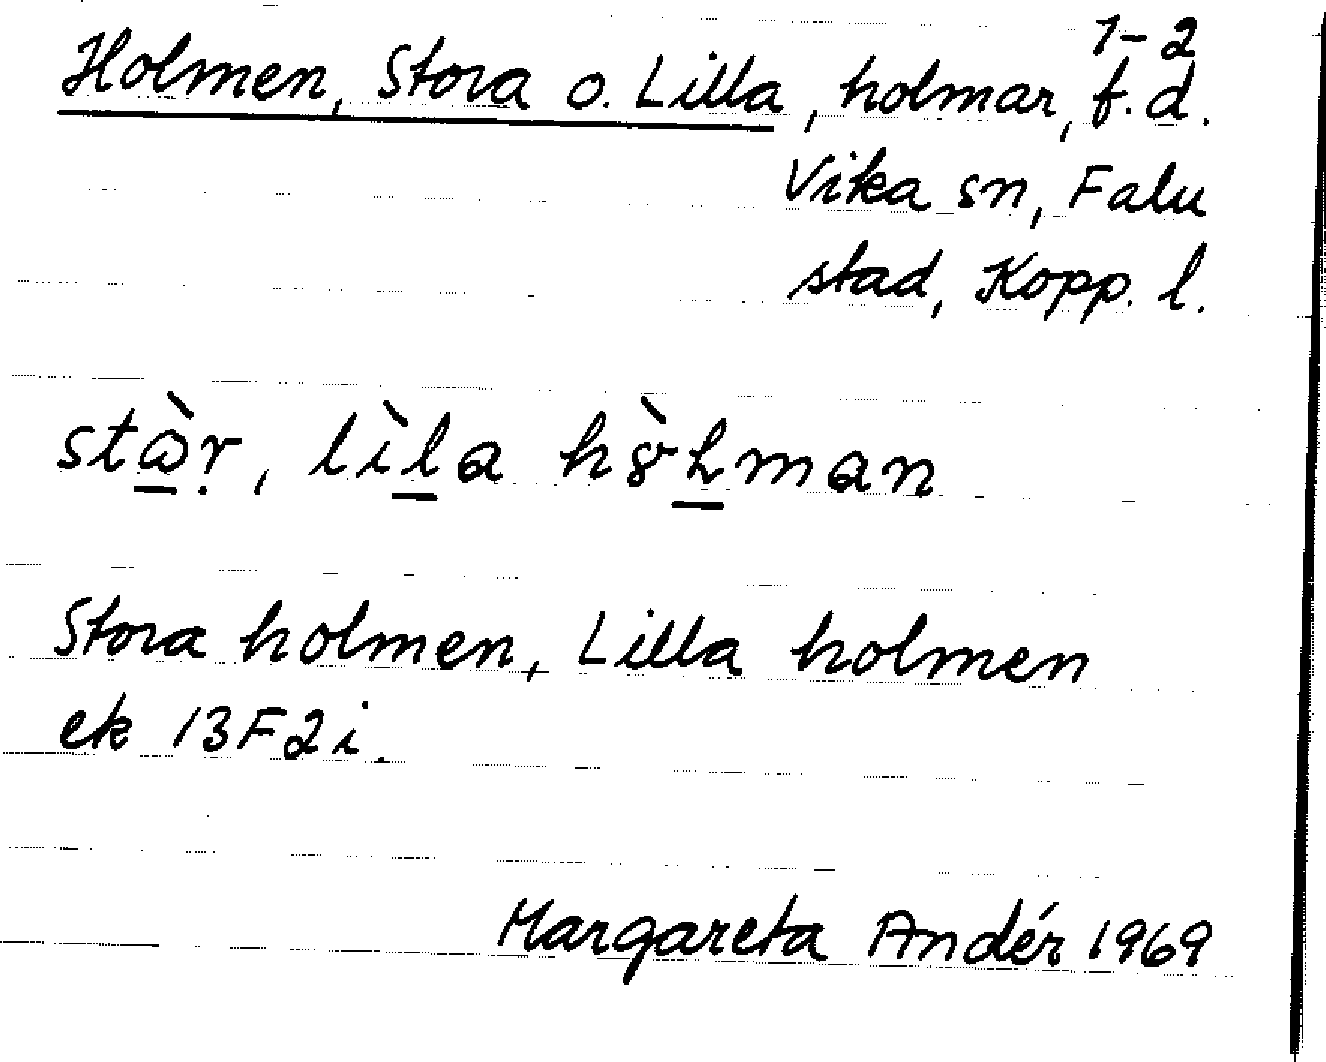 1-2
Holmen, Stora o. Lilla, holmar, f.d.
Vika sn, Falu
stad, Kopp. l.
lìla
Stora holmen, Lilla holmen
ek 13F2i.
Margareta Andér 1969